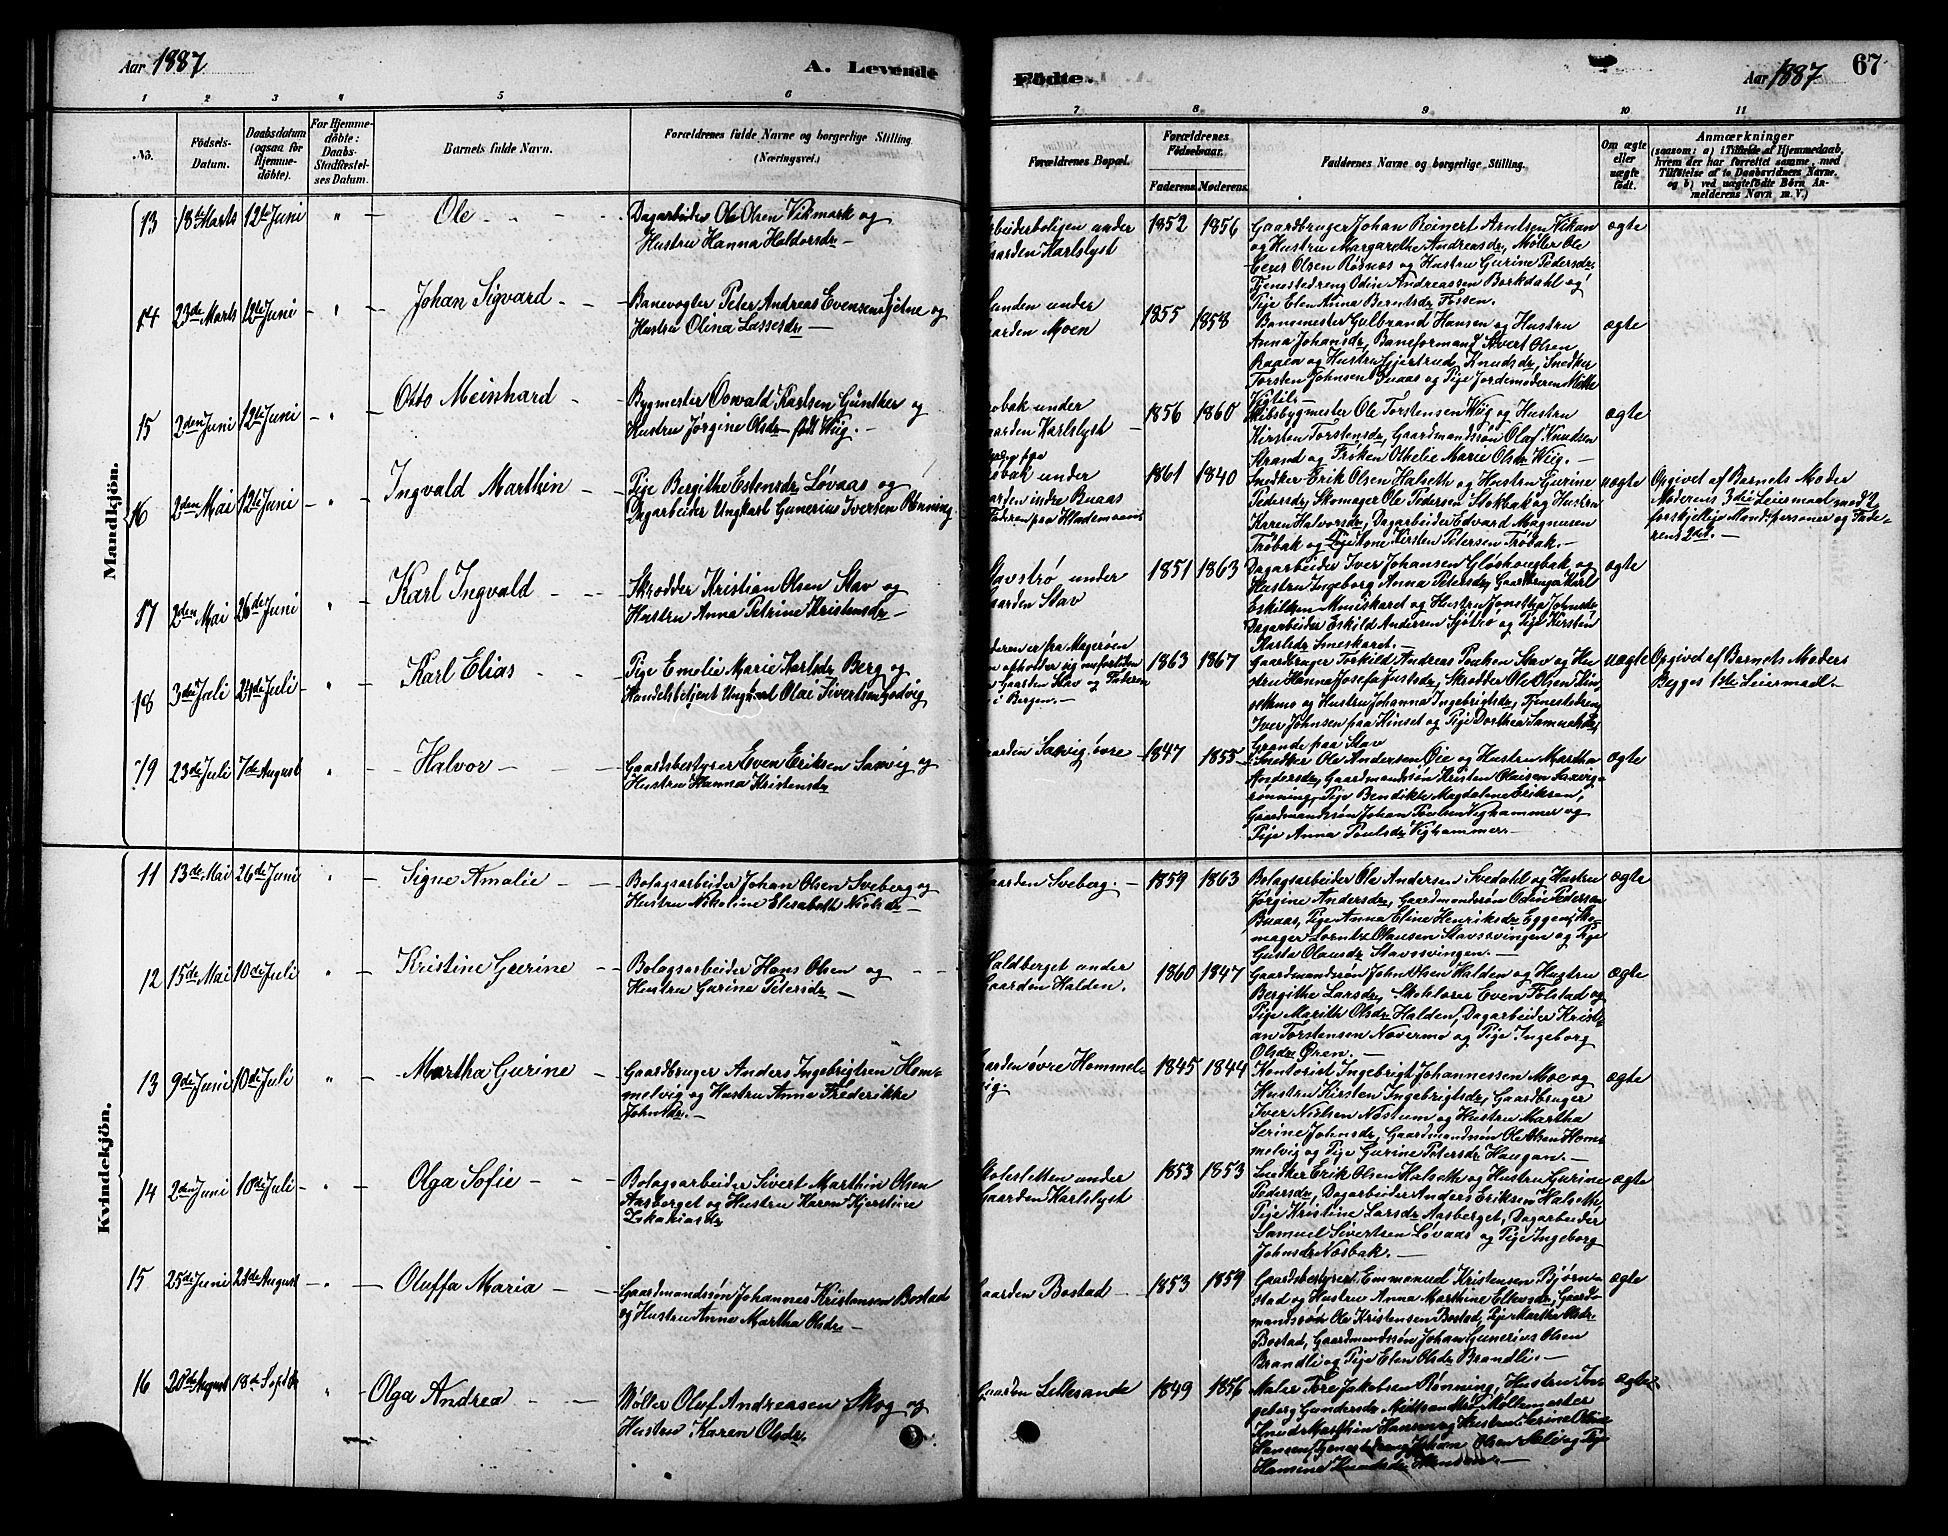 Aar 1887
A. Levende
Födte.
Aar 1887
67
1 2 3 4 5 6 7 8 9 10 11
No.
Födsels-
Datum.
Daabsdatum
(ogsaa for
Hjemme-
döbte).
For Hjemme-
döbte:
Daabs-
Stadfæstel-
ses Datum.
Barnets fulde Navn.
Forældrenes fulde Navne og borgerlige Stilling.
(Næringsvei.)
Forældrenes Bopæl.
Forældrenes
Födselsaar.
Faderens. Moderens.
Faddernes Navne og borgerlige Stilling.
Om ægte
eller
uægte
födt.
Anmærkninger
(saasom: a) i Tilfælde af Hjemmedaab,
hvem der har forrettet samme, med
Tilföielse af to Daabsvidners Navne,
og b) ved uægtefödte Börn An-
melderens Navn m. V.)
Mandkjön.
13 18de Marts 12te Juni " Ole
Dagarbeider Ole Olsen Vikmark og
Hustru Hanna Haldorsdr
Arbeiderboligen under
Gaarden Karlslyst
1852 1856
Gaardbruger Johan Reinert Arntsen Vikan
og Hustru Margarethe Andreasdr, Møller Ole
Olsen Rødnæs og Hustru Gurine Pedersdr
Tjenestedreng Odin Andreassen Borkdahl og
Pige Elen Anna Berntsdr Fossen.
ægte
14 23de Marts 12te Juni " Johan Sigvard
Banevogter Peter Andreas Evensen Fjelne og
Hustru Olina Lassesdr
under
Gaarden Moen
1855 1858
Banemester Gulbrand Hansen og Hustru
Anna Johansdr, Baneformand Sivert Olsen
Raaen og Hustru Gjertrud Knudsdr, Snedker
Torsten Johnsen Buaas og Pige Jordemoderen Mette
ægte
15 2den Juni 12te Juni " Otto Meinhard
Bygmester Oswald Karlsen Günther og
Hustru Jørgine Olsdr født Wiig.
under
Gaarden Karlslyst
1856 1860
Skibsbygmester Ole Torstensen Wiig og Hustru
Kirsten Torstensdr, Gaardmandssøn Olaf Knudsen
Strand og Frøken Othelie Marie Olsdr Wiig.
ægte
16 2den Mai 12te Juni " Ingvald Marthin
Pige Bergithe Estensdr Løvaas og
Dagarbeider Ungkarl Gunerius Iversen Rønning
under
Gaarden indre Buaas
Faderen paa
1861 1840
Snedker Erik Olsen Halseth og Hustru Gurine
Pedersdr, Skomager Ole Pedersen Stokbak og Hustru
Karen Halvorsdr, Dagarbeider Edvard Magnusen
Trøbak og Kone Kirsten Petersen Trøbak.
uægte
Opgivet af Barnets Moder
Moderens 3die Leiermaal med 2
forskjellige Mandspersoner og Fade-
rens 2det.
17 2den Mai 26de Juni " Karl Ingvald
Skrædder Kristian Olsen Stav og
Hustru Anna Petrine Kristensdr
Stavstrø under
Gaarden Stav
1851 1863
Dagarbeider Iver Johansen Gløshaugbak og
Hustru Ingeborg Anna Petersdr, Gaardbruger Karl
Eskildsen og Hustru Jonetha Johnsdr
Dagarbeider Eskild Andersen Sjøtrø og Pige Kirsten
Karlsdr Smeskaret.
ægte
18 3die Juli 24de Juli " Karl Elias
Pige Emelie Marie Karlsdr Berg og
Handelsbetjent Ungkarl Olai Sivertsen
er fra Magerøen
opholder sig
Gaarden Stav og Faderen
i Bergen.
1863 1867
Gaardbruger Torkild Andreas Paulsen Stav og Hu-
stru Hanna Josefa Justsdr, Skrædder Ole Olsen
og Hustru Johanna Ingebrigtsdr, Tjenestedreng
Iver Johnsen paa Hinset og Pige Dorthea Samuelsdr
Grande paa Stav
uægte
Opgivet af Barnets Moder
Begges 1ste Leiermaal.
19 23de Juli 7de August " Halvor
Gaardsbestyrer Even Eriksen Saxvig og
Hustru Hanna Kristensdr
Gaarden Saxvig øvre
1847 1855
Snedker Ole Andersen Øie og Hustru Martha
Andersdr, Gaardmandssøn Kristen Olausen Saxvig-
rønning, Pige Bendikte Magdalene Eriksen,
Gaardmandssøn Johan Poulsen Vighammer og
Pige Anna Poulsdr Vighammer
ægte
Kvindekjön.
11 13de Mai 26de Juni " Signe Amalie
Bolagsarbeider Johan Olsen Sveberg og
Hustru Nikoline Elisabeth Nielsdr
Gaarden Sveberg.
1859 1863
Bolagsarbeider Ole Andersen Svedahl og Hustru
Jørgine Andersdr, Gaardmandssøn Odin Pedersen
Buaas, Pige Anna Eline Henriksdr Eggen, Sko-
mager Lorntz Olausen Stavssvingen og Pige
Gusta Olausdr Stavssvingen.
ægte
12 15de Mai 10de Juli " Kristine Gurine
Bolagsarbeider Hans Olsen og
Hustru Gurine Petersdr
Haldberget under
Gaarden Halden.
1860 1847
Gaardmandssøn John Olsen Halden og Hustru
Bergithe Larsdr, Skolelærer Even Følstad og
Pige Marith Olsdr Halden, Dagarbeider Kristi-
an Torstensen Nævermo og Pige Ingeborg
Olsdr Øren.
ægte
13 9de Juni 10de Juli " Martha Gurine
Gaardbruger Anders Ingebrigtsen Hom-
melvig og Hustru Anne Frederikke
Johnsdr.
Gaarden øvre Hommel-
vig.
1845 1844
Kontorist Ingebrigt Johannessen Moe og
Hustru Kirsten Ingebrigtsdr, Gaardbruger
Iver Nielsen Næstum og Hustru Martha
Serine Johnsdr, Gaardmandssøn Ole Olsen Hom-
melvig og Pige Gurine Petersdr Haugan.
ægte
14 2den Juni 10de Juli " Olga Sofie
Bolagsarbeider Sivert Marthin Olsen
Aasberget og Hustru Karen Kjerstine
Zakariasdr
under
Gaarden Karlslyst
1853 1853
Snedker Erik Olsen Halseth og Hustru Gurine
Pedersdr, Dagarbeider Anders Eriksen Halseth,
Pige Kristine Larsdr Aasberget, Dagarbeider
Samuel Sivertsen Løvaas og Pige Ingeborg
Johnsdr Næsbak.
ægte
15 25de Juni 28de August " Oluffa Maria
Gaardmandssøn Johannes Kristensen Bostad
og Hustru Anne Martha Olsdr
Gaarden Bostad
1853 1859
Gaardsbestyrer Emmanuel Kristensen Bjørn-
stad og Hustru Anna Marthine Ellevsdr, Gaard-
mandssøn Ole Kristensen Bostad, Pige Martha Olsdr
Bostad, Gaardmandssøn Johan Gunerius Olsen
Brandli og Pige Elen Olsdr Brandli.
ægte
16 20de August 18de Septbr " Olga Andrea
Møller Oluf Andreasen Skog og
Hustru Karen Olsdr.
Gaarden Lillesande
1849 1856
Maler Tore Jakobsen Rønning, Hustru In-
geborg Gundersdr, Møllemester
Knud Marthin Hansen og Hustru
Hansen, Tjenestedreng Johan Olsen og Pige
Hansine
ægte